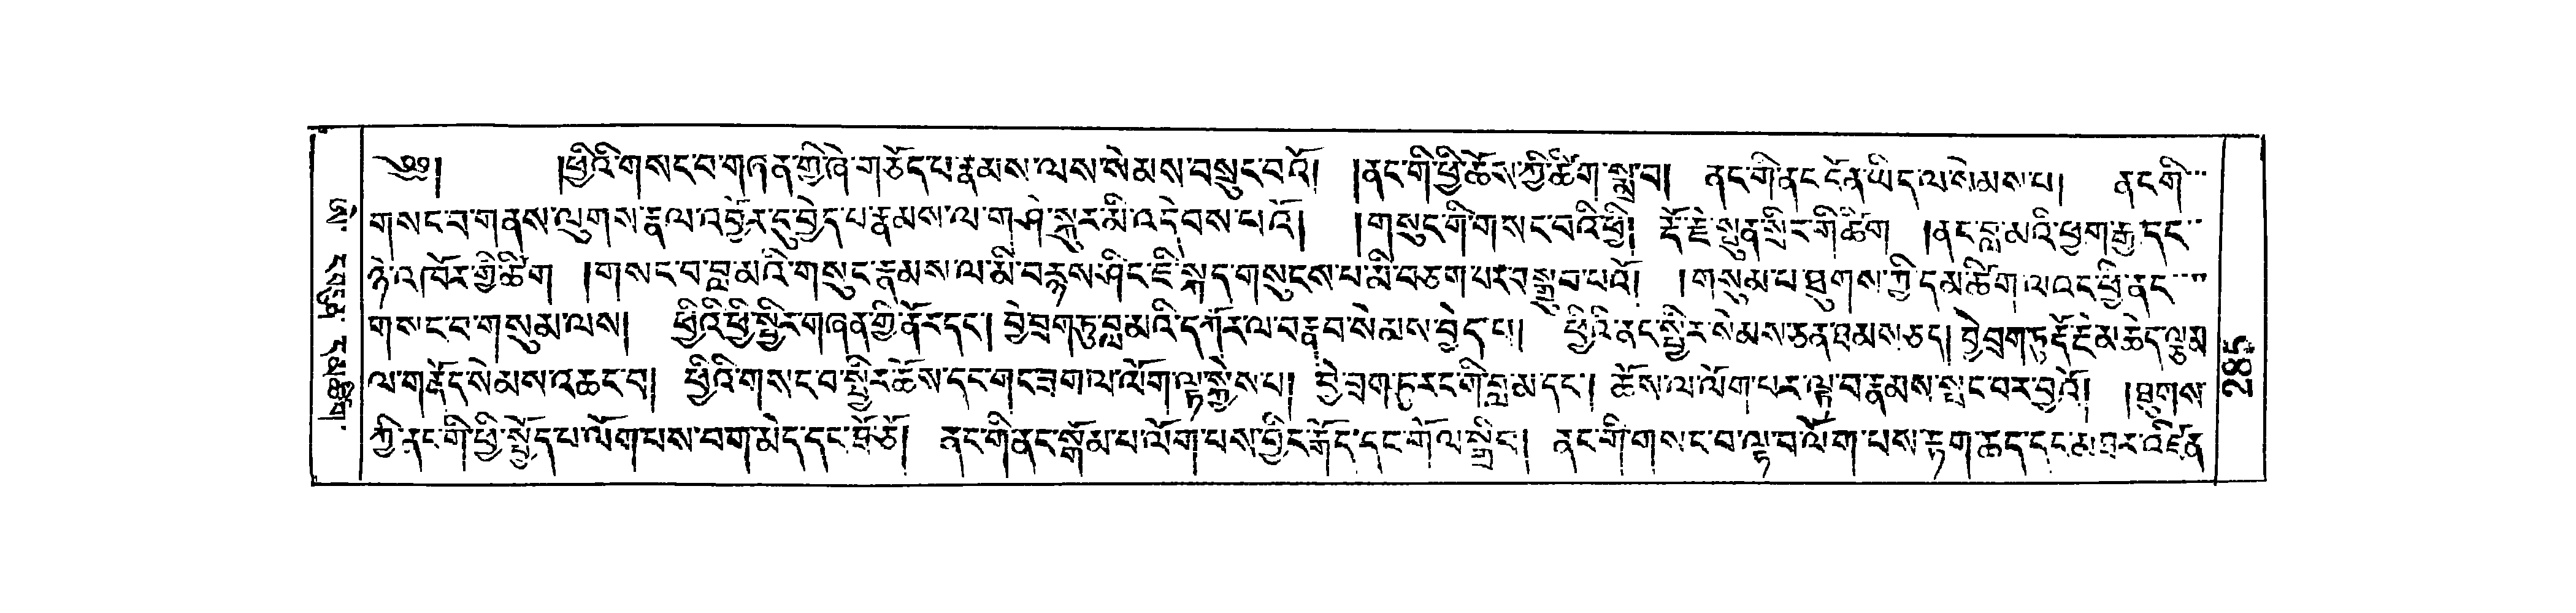 ༄༅། །ཕྱིའི་གསང་བ་གཞན་གྱི་ཞེ་གཅོད་པ་རྣམས་ལས་སེམས་བསྲུང་བའོ། །ནང་གི་ཕྱི་ཆོས་ཀྱི་ཚིག་སྨྲ་བ། ནང་གི་ནང་དོན་ཡིད་ལ་སེམས་པ། ནང་གི་
གསང་བ་གནས་ལུགས་རྣལ་འབྱོར་དུ་བྱེད་པ་རྣམས་ལ་གཤེ་སྐུར་མི་འདེབས་པའོ། །གསུང་གི་གསང་བའི་ཕྱི། རྡོ་རྗེ་སྤུན་སྲིང་གི་ཚིག །ནང་བླ་མའི་ཕྱག་རྒྱ་དང་
ཉེ་འཁོར་གྱི་ཚིག །གསང་བ་བླ་མའི་གསུང་རྣམས་ལ་མི་བརྙས་ཤིང་ཇི་སྐད་གསུངས་པ་མི་བཅག་པར་བསྒྲུབ་པའོ། །གསུམ་པ་ཐུགས་ཀྱི་དམ་ཚིག་ལའང་ཕྱི་ནང་
གསང་བ་གསུམ་ལས། ཕྱིའི་ཕྱི་སྤྱིར་གཞན་གྱི་ནོར་དང་། བྱེ་བྲག་ཏུ་བླ་མའི་དཀོར་ལ་བརྐུ་བ་སེམས་བྱེད་པ། ཕྱིའི་ནང་སྤྱིར་སེམས་ཅན་ཐམས་ཅད། བྱེ་བྲག་ཏུ་རྡོ་རྗེ་མཆེད་ལྕམ་
ལ་གནོད་སེམས་འཆང་བ། ཕྱིའི་གསང་བ་སྤྱིར་ཆོས་དང་གང་ཟག་ལ་ལོག་ལྟ་སྐྱེས་པ། བྱེ་བྲག་ཏུ་རང་གི་བླ་མ་དང་། ཆོས་ལ་ལོག་པར་ལྟ་བ་རྣམས་སྤང་བར་བྱའོ། །ཐུགས་
ཀྱི་ནང་གི་ཕྱི་སྤྱོད་པ་ལོག་པས་བག་མེད་དང་ཐོ་ཅོ། ནང་གི་ནང་སྒོམ་པ་ལོག་པས་བྱིང་རྒོད་དང་གོལ་སྒྲིབ། ནང་གི་གསང་བ་ལྟ་བ་ལོག་པས་རྟག་ཆད་དང་མཐར་འཛིན